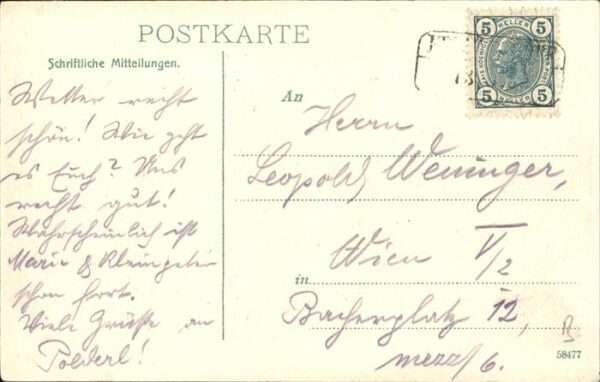 POSTKARTE
Schriftliche Mitteilungen.
5 HELLER 5
5 HELLER 5
13
Wetter recht
schön! Wie geht
es Euch? Uns
recht gut!
Wahrscheinlich ist
Marie &
schon fort.
Viele Grüsse an
Polderl!
An
Herrn
Leopold Weninger,
Wien V/2
in
Bacherplatz 12,
mezz/6.
B
58477